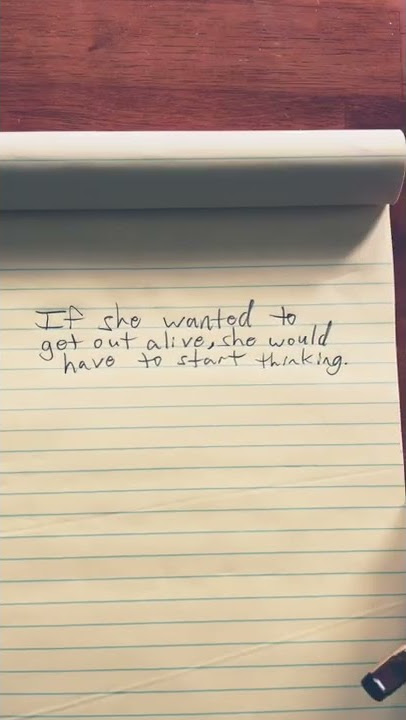 If she wanted to
get out alive, she would
have to start thinking.